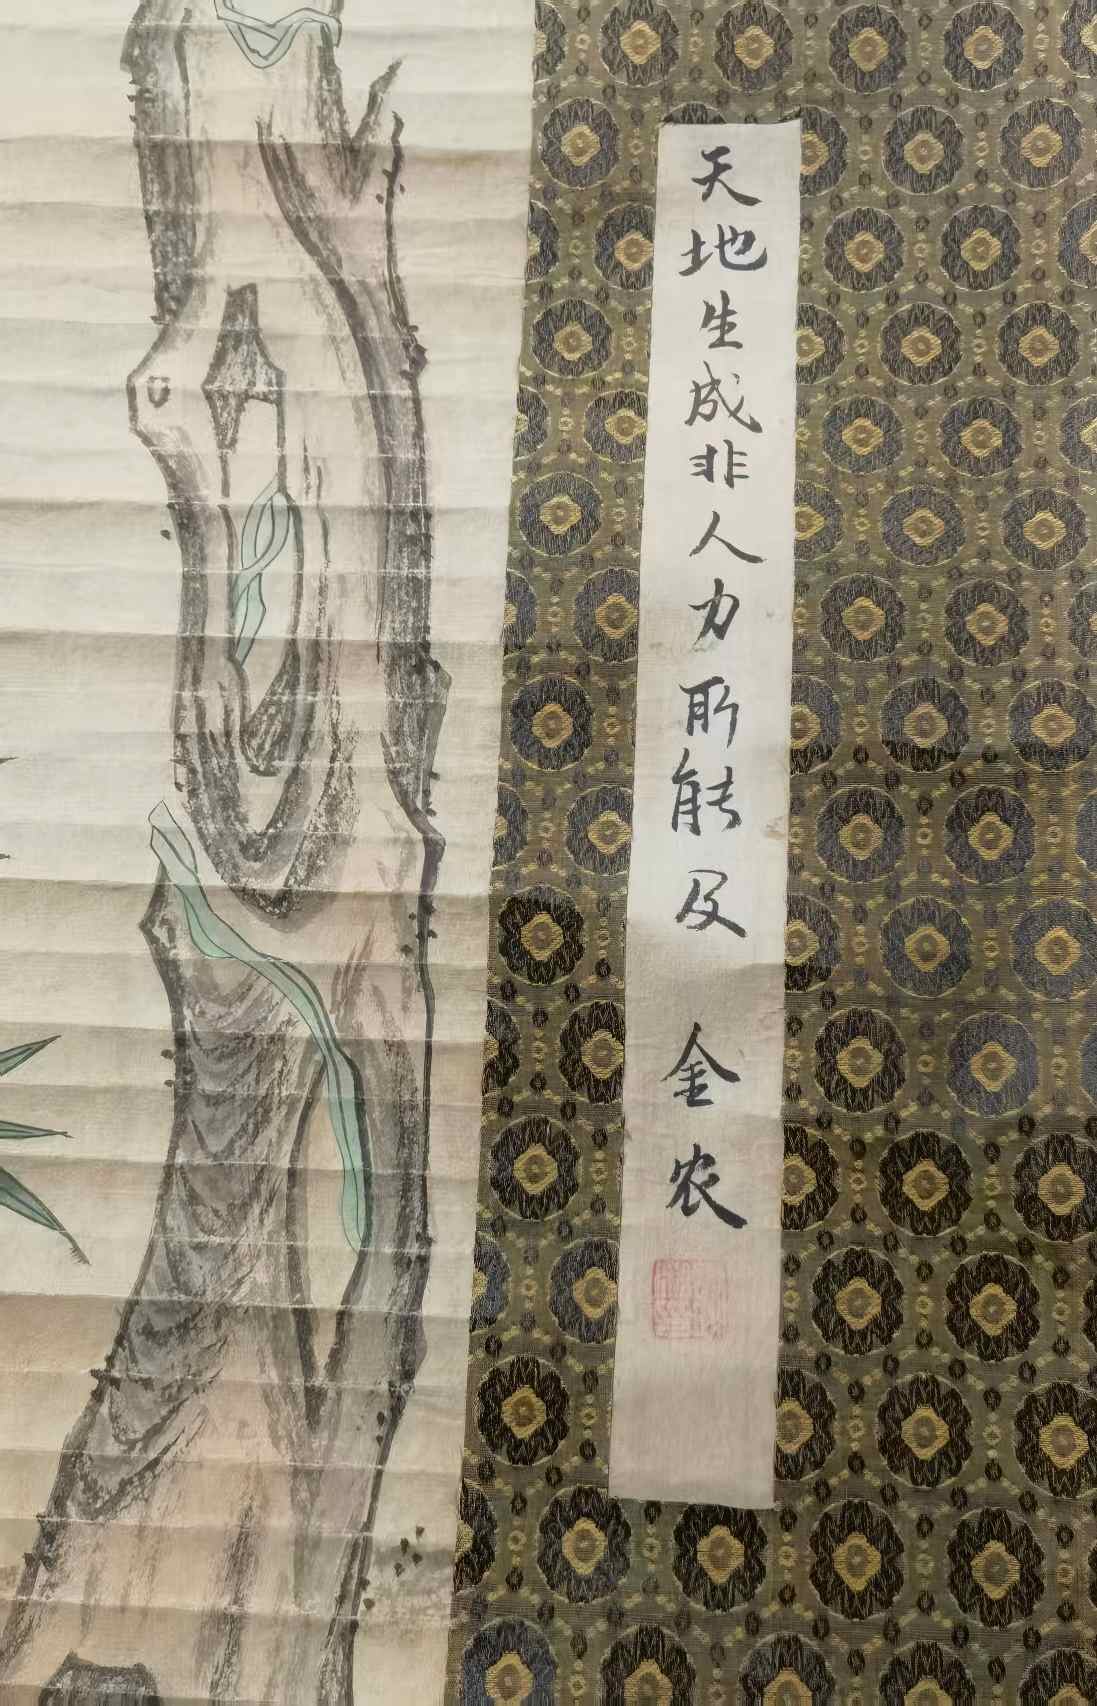 天地生成非人力所能及 金农